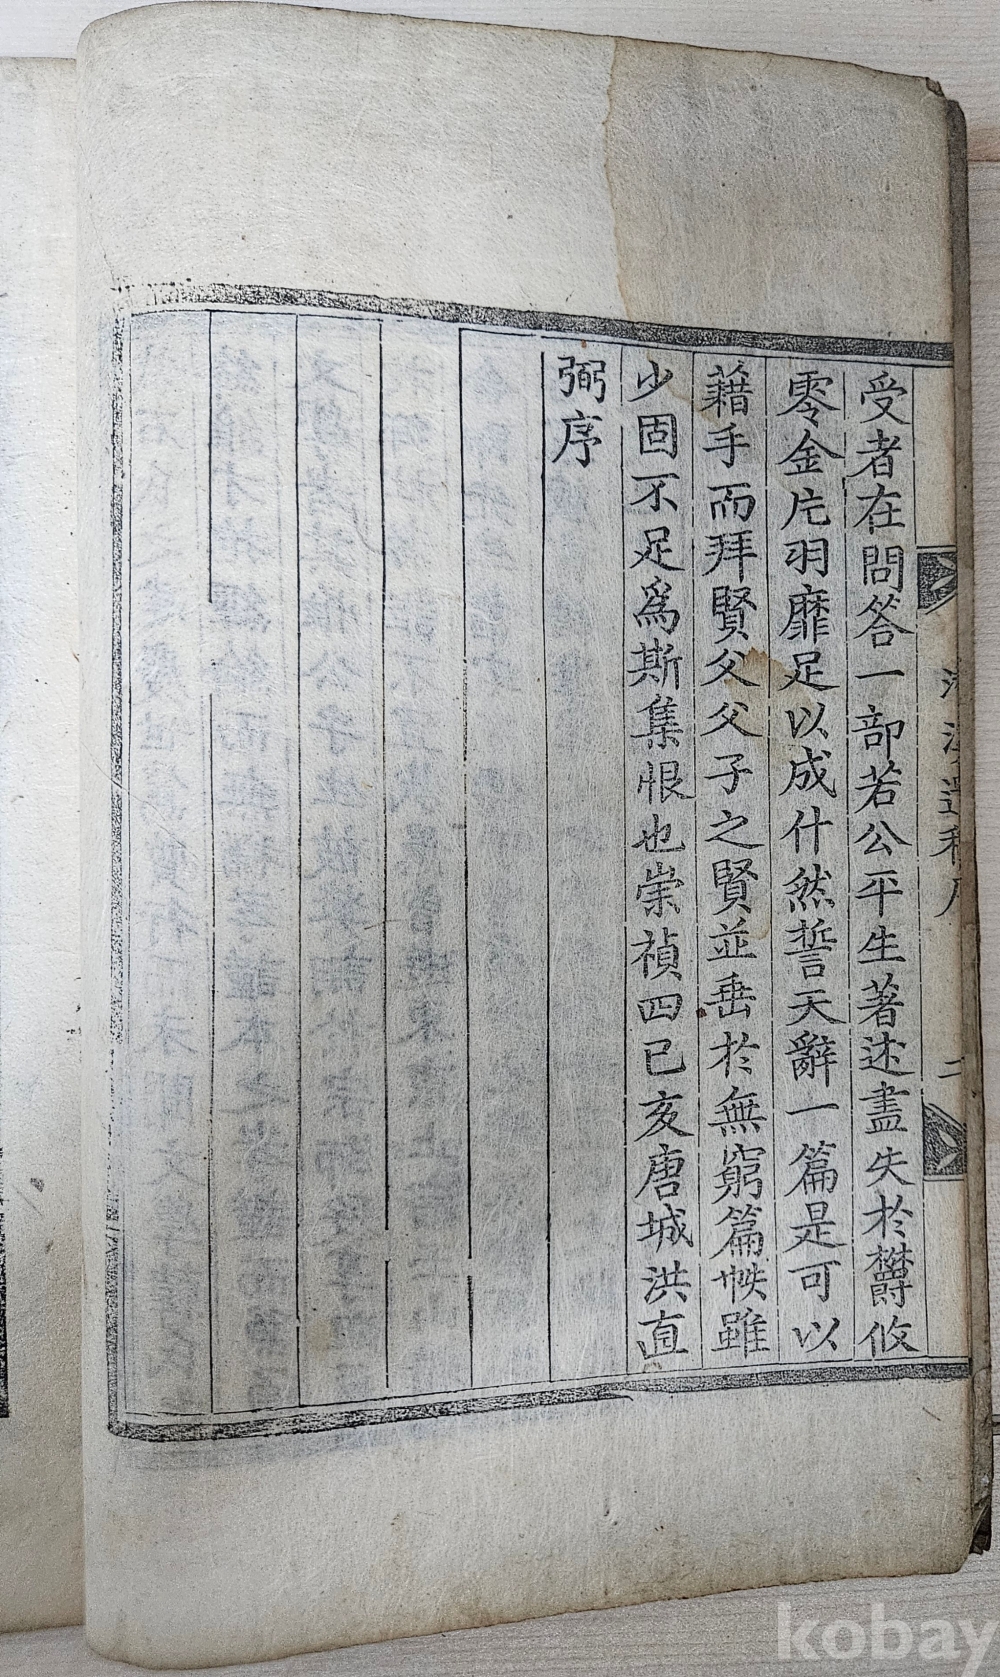 受者在問答一部若公平生著述盡失於欝攸
零金片羽靡足以成什然誓天辭一篇是可以
藉手而拜賢父父子之賢並垂於無窮篇帙雖
少固不足爲斯集恨也崇禎四己亥唐城洪直
弼序
二
kobay